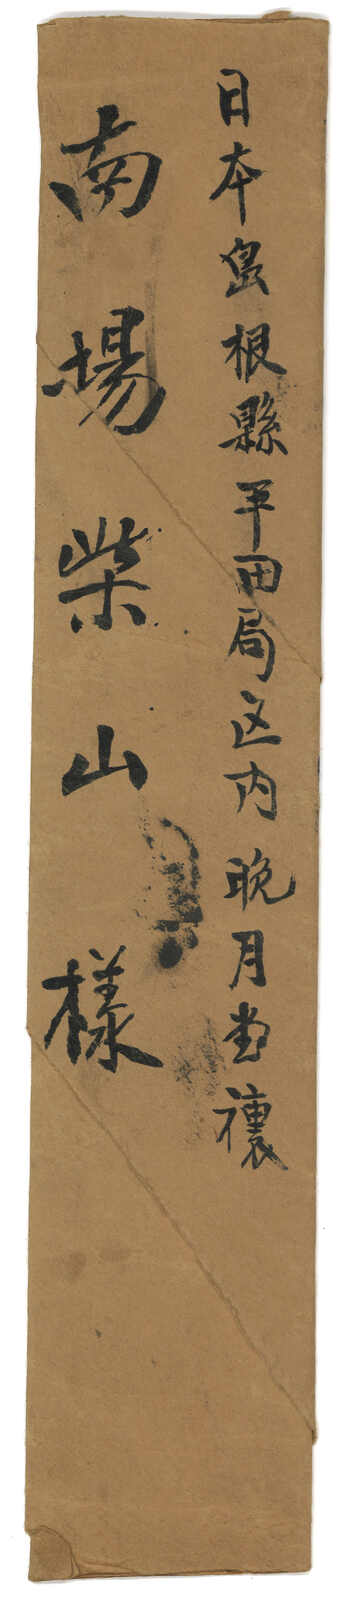 日本島根縣平田局区内晩月堂裏
南場柴山様